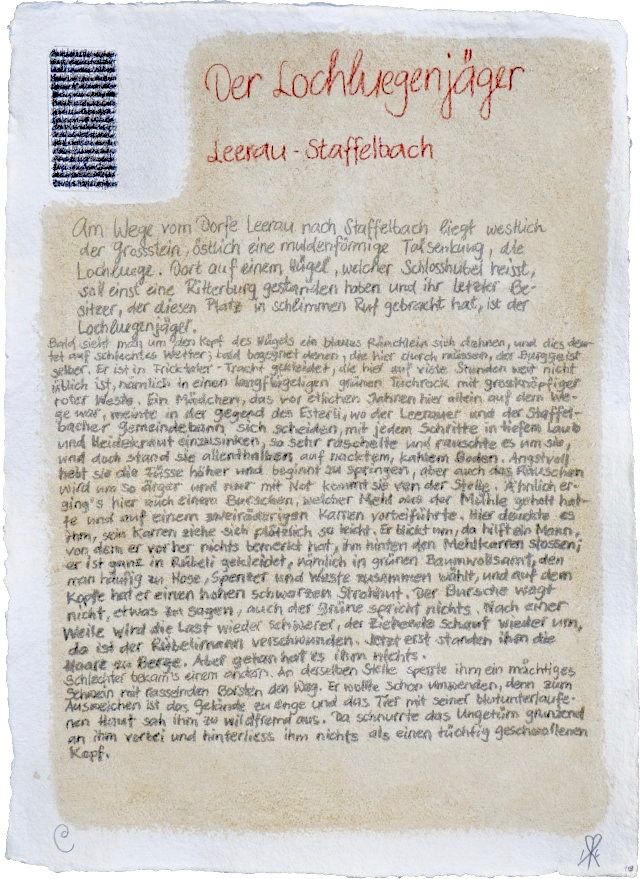 Der Lochluegenjäger
Leerau - Staffelbach
Am Wege vom Dorfe Leerau nach Staffelbach liegt westlich
der Grossstein, östlich eine muldenförmige Talsenkung, die
Lochluege. Dort auf einem Hügel, welcher Schlosshubel heisst,
soll einst eine Ritterburg gestanden haben und ihr letzter Be-
sitzer, der diesen Platz in schlimmen Ruf gebracht hat, ist der
Lochluegenjäger.
Bald sieht man um den Kopf des Hügels ein blaues Räuchlein sich drehen, und dies deu-
tet auf schlechtes Wetter; bald begegnet denen, die hier durch müssen, der Burggeist
selber. Er ist in Fricktaler-Tracht gekleidet, die hier auf viele Stunden weit nicht
üblich ist, nämlich in einen langflügeligen grünen Tuchrock mit grossknöpfiger
roter Weste. Ein Mädchen, das vor etlichen Jahren hier allein auf dem We-
ge war, meinte in der Gegend des Esterli, wo der Leerauer und der Staffel-
bacher Gemeindebann sich scheiden, mit jedem Schritte in tiefem Laub
und Heidekraut einzusinken, so sehr raschelte und rauschte es um sie,
und doch stand sie allenthalben auf nacktem, kahlem Boden. Angstvoll
hebt sie die Füsse höher und beginnt zu springen, aber auch das Rauschen
wird um so ärger und nur mit Not kommt sie von der Stelle. Ähnlich er-
ging's hier auch einem Burschen, welcher Mehl aus der Mühle geholt hat-
te und auf einem zweiräderigen Karren vorbeiführte. Hier deuchte es
ihm, sein Karren ziehe sich plötzlich so leicht. Er blickt um, da hilft ein Mann,
von dem er vorher nichts bemerkt hat, ihm hinten den Mehlkarren stossen;
er ist ganz in Rübeli gekleidet, nämlich in grünen Baumwollsamt, den
man häufig zu Hose, Spenzer und Weste zusammen wählt, und auf dem
Kopfe hat er einen hohen schwarzen Strohhut. Der Bursche wagt
nicht, etwas zu sagen, auch der Grüne spricht nichts. Nach einer
Weile wird die Last wieder schwerer, der Ziehende schaut wieder um,
da ist der Rübelimann verschwunden. Jetzt erst standen ihm die
Haare zu Berge. Aber getan hat es ihm nichts.
Schlechter bekam's einem andern. An derselben Stelle sperrte ihm ein mächtiges
Schwein mit rasselnden Borsten den Weg. Er wollte schon umwenden, denn zum
Ausweichen ist das Gelände zu enge und das Tier mit seiner blutunterlaufe-
nen Haut sah ihm zu wildfremd aus. Da schnurrte das Ungetüm grunzend
an ihm vorbei und hinterliess ihm nichts als einen tüchtig geschwollenen
Kopf.